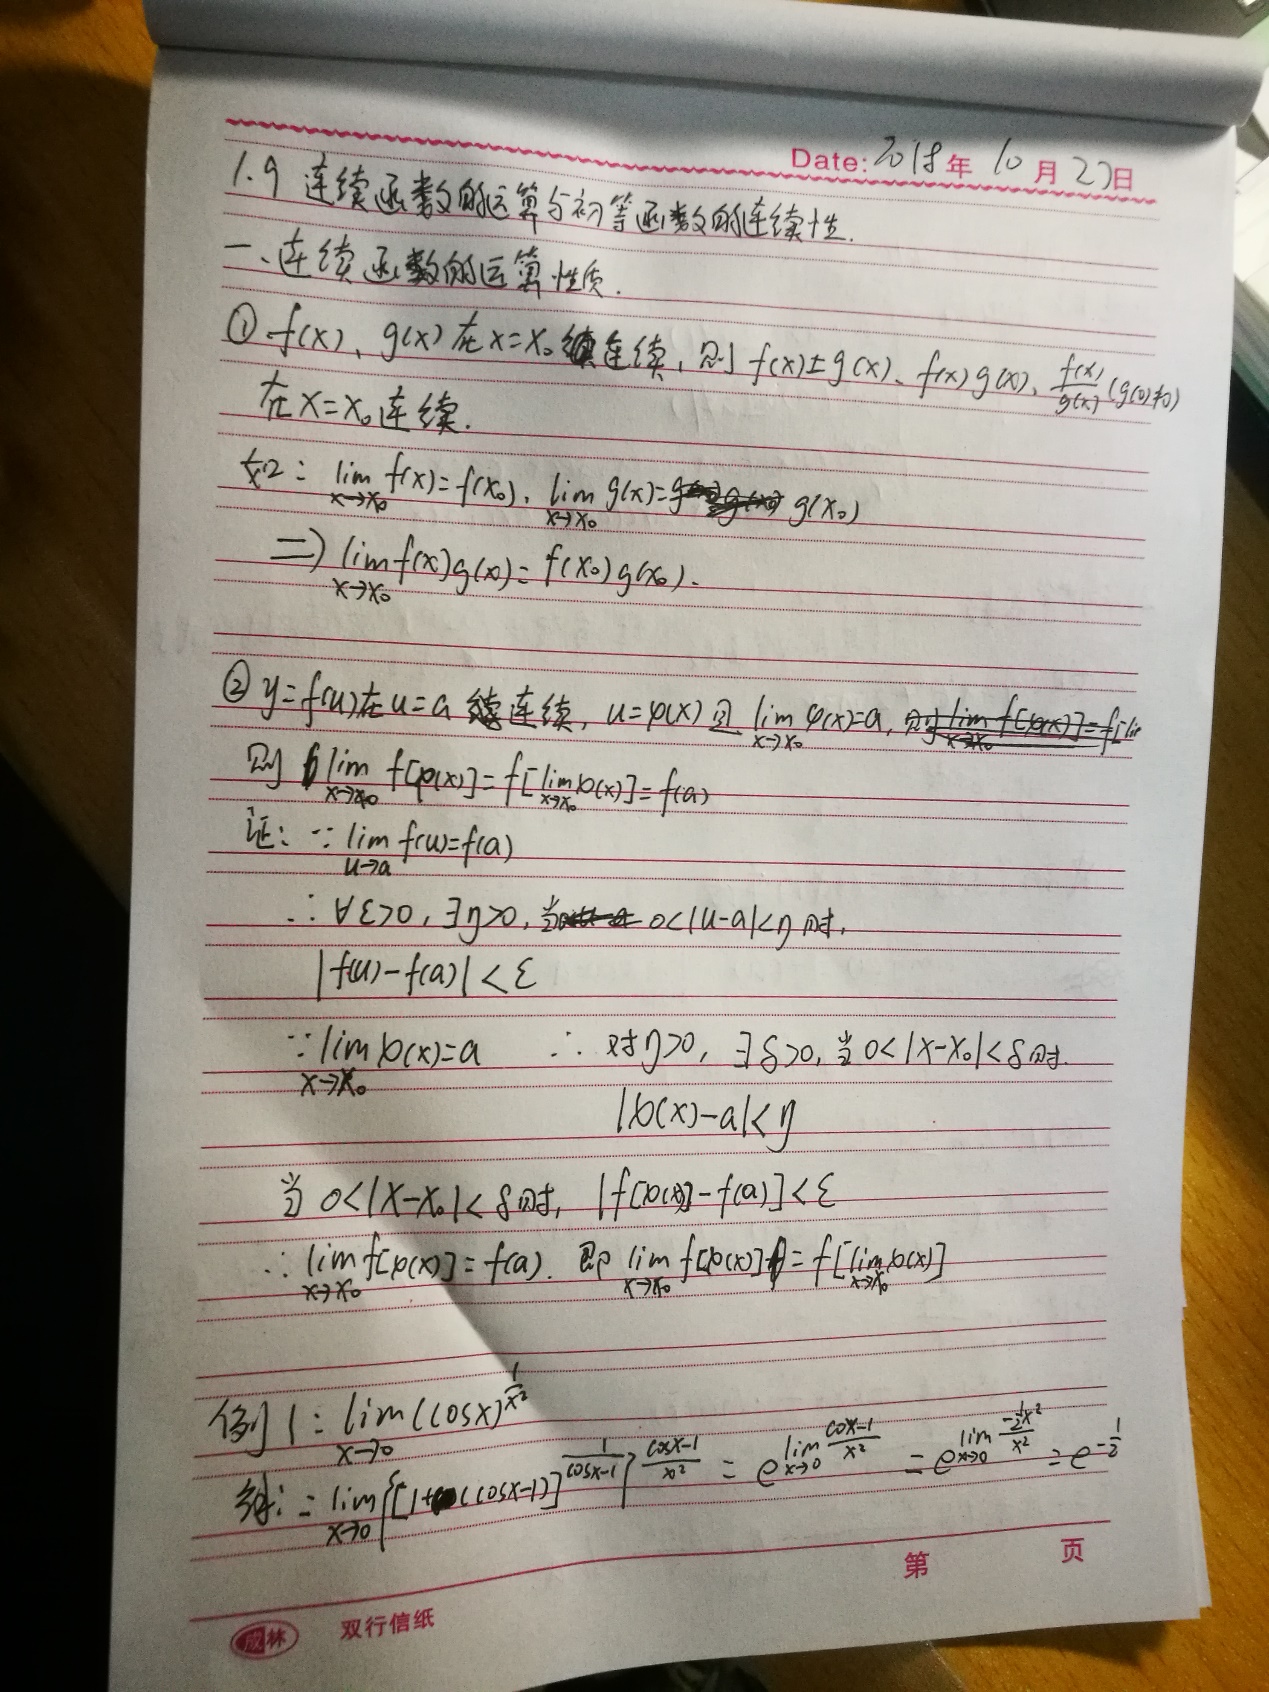 Date: 2018年 10月 27日
1.9 连续函数的运算与初等函数的连续性.
一、连续函数的运算性质.
① f(x)、g(x)在x=x₀连续,则 f(x)±g(x)、f(x)g(x)、f(x)/g(x) (g(x)≠0)
在x=x₀连续.
如: lim_{x→x₀} f(x)=f(x₀), lim_{x→x₀} g(x)=g(x₀)
⇒ lim_{x→x₀} f(x)g(x)=f(x₀)g(x₀).
② y=f(u)在u=a连续, u=φ(x)且 lim_{x→x₀} φ(x)=a,
则 lim_{x→x₀} f[φ(x)]=f[lim_{x→x₀} φ(x)]=f(a)
证: ∵ lim_{u→a} f(u)=f(a)
∴ ∀ε>0, ∃η>0, 当 0<|u-a|<η时,
|f(u)-f(a)|<ε
∵ lim_{x→x₀} φ(x)=a ∴ 对η>0, ∃δ>0, 当0<|x-x₀|<δ时.
|φ(x)-a|<η
当 0<|x-x₀|<δ时, |f[φ(x)]-f(a)|<ε
∴ lim_{x→x₀} f[φ(x)]=f(a). 即 lim_{x→x₀} f[φ(x)]=f[lim_{x→x₀} φ(x)]
例1: lim_{x→0} (cosx)^{1/x²}
解: = lim_{x→0} {[1+(cosx-1)]^{1/(cosx-1)}}^{(cosx-1)/x²} = e^{lim_{x→0} (cosx-1)/x²} = e^{lim_{x→0} (-½x²)/x²} = e^{-1/2}
第 页
成林 双行信纸